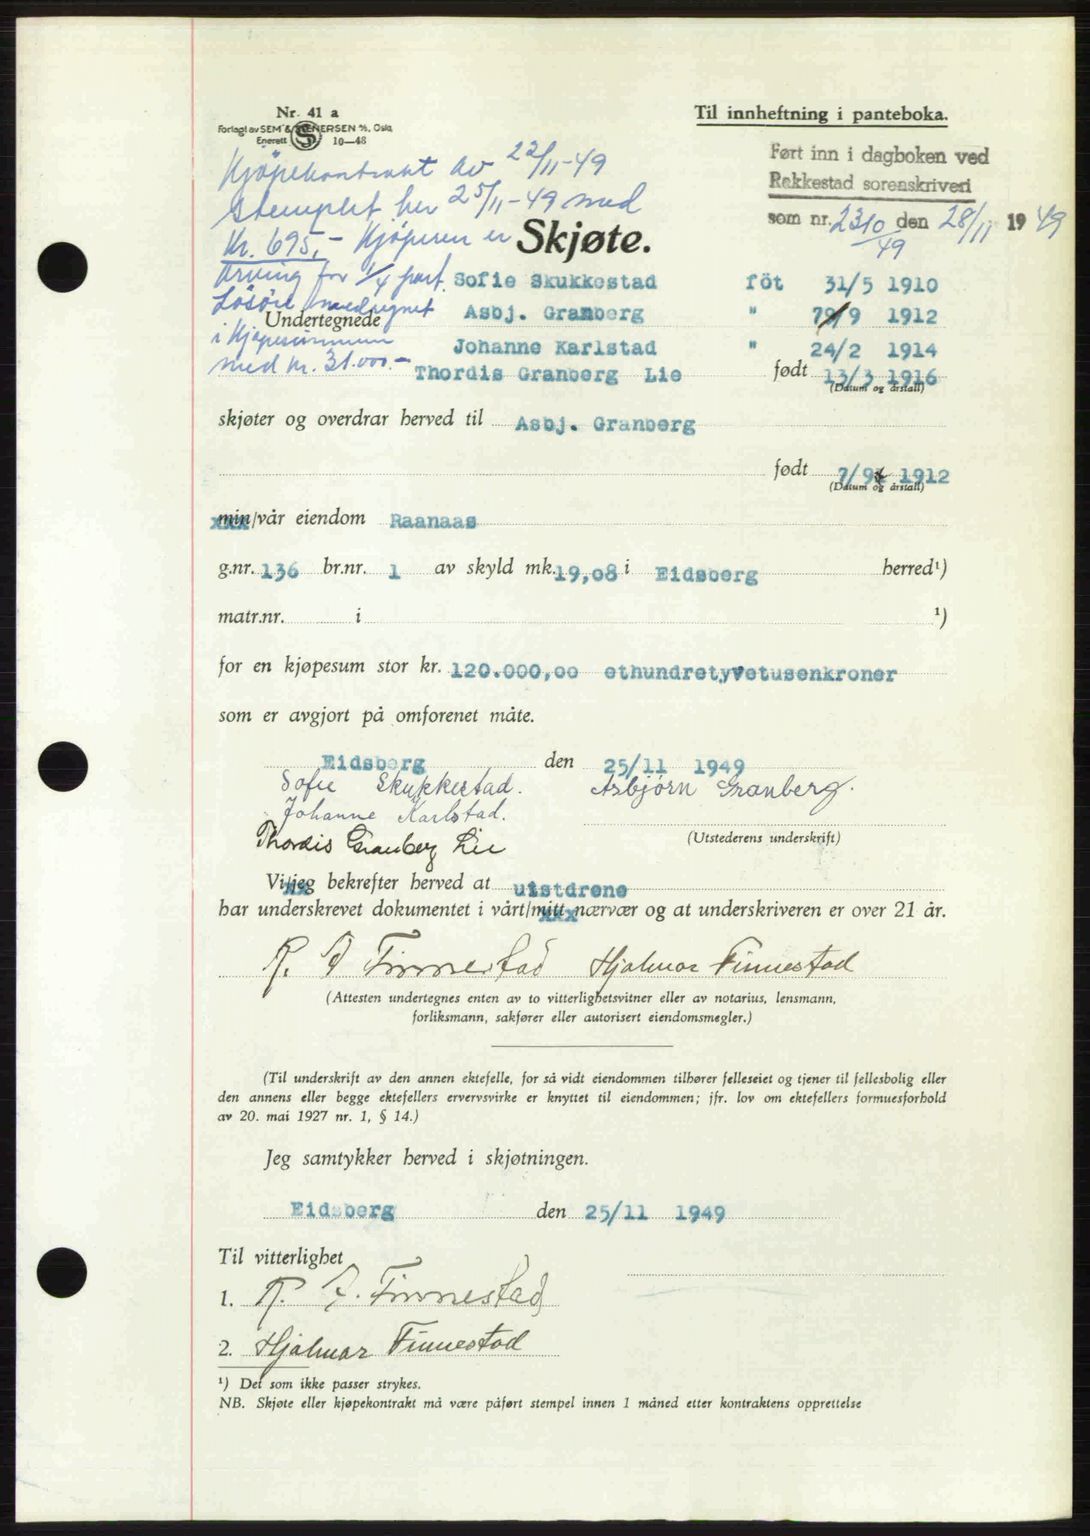 Nr. 41 a
Forlagt av SEM & STENERSEN A/S, Oslo
Enerett 10—48
Til innheftning i panteboka.
Ført inn i dagboken ved
Rakkestad sorenskriveri
som nr. 2310/49 den 28/11 1949
Kjøpekontrakt av 22/11-49
stemplet her 25/11-49 med
Kr. 695,- Kjøperen er
Skjøte.
arving for 1/4 part.
Løsøre medregnet
i kjøpesummen
med kr. 31.000.-
Sofie Skukkestad föt 31/5 1910
Undertegnede Asbj. Granberg " 7/9 1912
Johanne Karlstad " 24/2 1914
Thordis Granberg Lie født 13/3 1916
(Datum og årstall)
skjøter og overdrar herved til Asbj. Granberg
født 7/9 1912
(Datum og årstall)
min/vår eiendom Raanaas
g.nr. 136 br.nr. 1 av skyld mk. 19,08 i Eidsberg herred¹)
matr.nr. i ¹)
for en kjøpesum stor kr. 120.000,00 ethundretyvetusenkroner
som er avgjort på omforenet måte.
Eidsberg den 25/11 1949
Sofie Skukkestad. Asbjørn Granberg.
Johanne Karlstad.
Thordis Granberg Lie
(Utstederens underskrift)
Vi/jeg bekrefter herved at uistdrene
har underskrevet dokumentet i vårt/mitt nærvær og at underskriveren er over 21 år.
R. A Finnestad Hjalmar Finnestad
(Attesten undertegnes enten av to vitterlighetsvitner eller av notarius, lensmann,
forliksmann, sakfører eller autorisert eiendomsmegler.)
(Til underskrift av den annen ektefelle, for så vidt eiendommen tilhører felleseiet og tjener til fellesbolig eller
den annens eller begge ektefellers ervervsvirke er knyttet til eiendommen; jfr. lov om ektefellers formuesforhold
av 20. mai 1927 nr. 1, § 14.)
Jeg samtykker herved i skjøtningen.
Eidsberg den 25/11 1949
Til vitterlighet
1. R. A. Finnestad
2. Hjalmar Finnestad
¹) Det som ikke passer strykes.
NB. Skjøte eller kjøpekontrakt må være påført stempel innen 1 måned etter kontraktens opprettelse